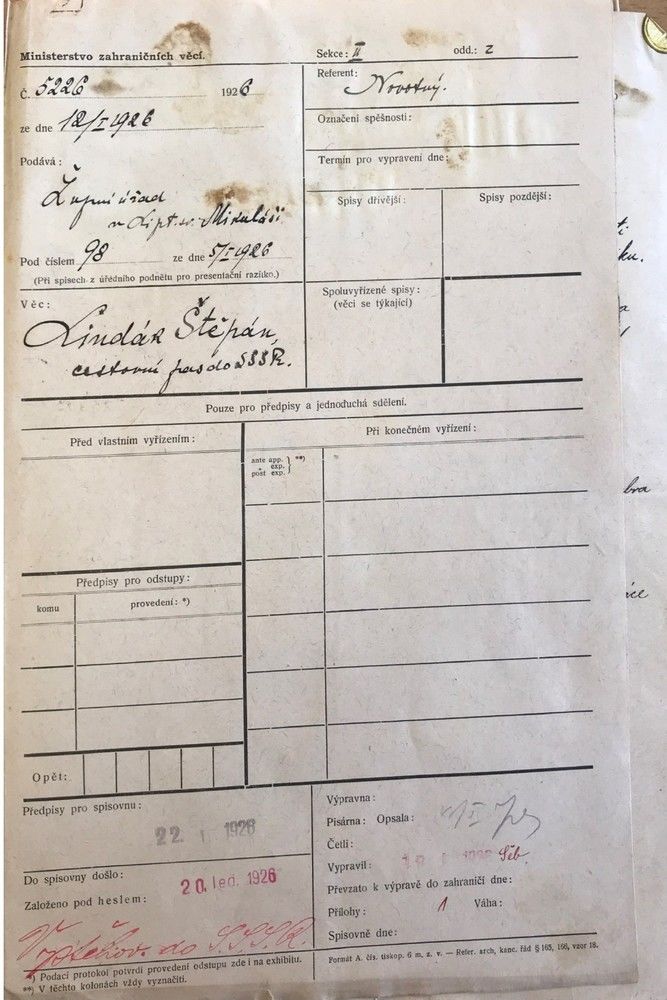 Ministerstvo zahraničních věcí.
Sekce: II odd.: 2
Č. 5226 1926
Referent: Novotný.
ze dne 12/I 1926
Označení spěšnosti:
Podává:
Termín pro vypravení dne:
Župní úřad
v Lipt. sv. Mikuláši
Spisy dřívější:
Spisy pozdější:
Pod číslem 98 ze dne 5/I 1926
(Při spisech z úředního podnětu pro presentační razítko.)
Věc:
Spoluvyřízené spisy:
(věci se týkající)
Lindák Štěpán,
cestovní pas do SSSR.
Pouze pro předpisy a jednoduchá sdělení.
Před vlastním vyřízením:
Při konečném vyřízení:
ante app. **)
exp.
post exp.
Předpisy pro odstupy:
komu
provedení: *)
Opět:
Předpisy pro spisovnu:
22. 1926
Do spisovny došlo:
20. led. 1926
Založeno pod heslem:
do S.S.S.R.
*) Podací protokol potvrdí provedení odstupu zde i na exhibitu.
**) V těchto kolonách vždy vyznačiti.
Výpravna:
Pisárna: Opsala:
Četli:
Vypravil:
Převzato k výpravě do zahraničí dne:
Přílohy: 1 Váha:
Spisovně dne:
Formát A. čís. tiskop. 6 m. z. v. — Refer. arch, kanc. řád § 165, 166, vzor 18.